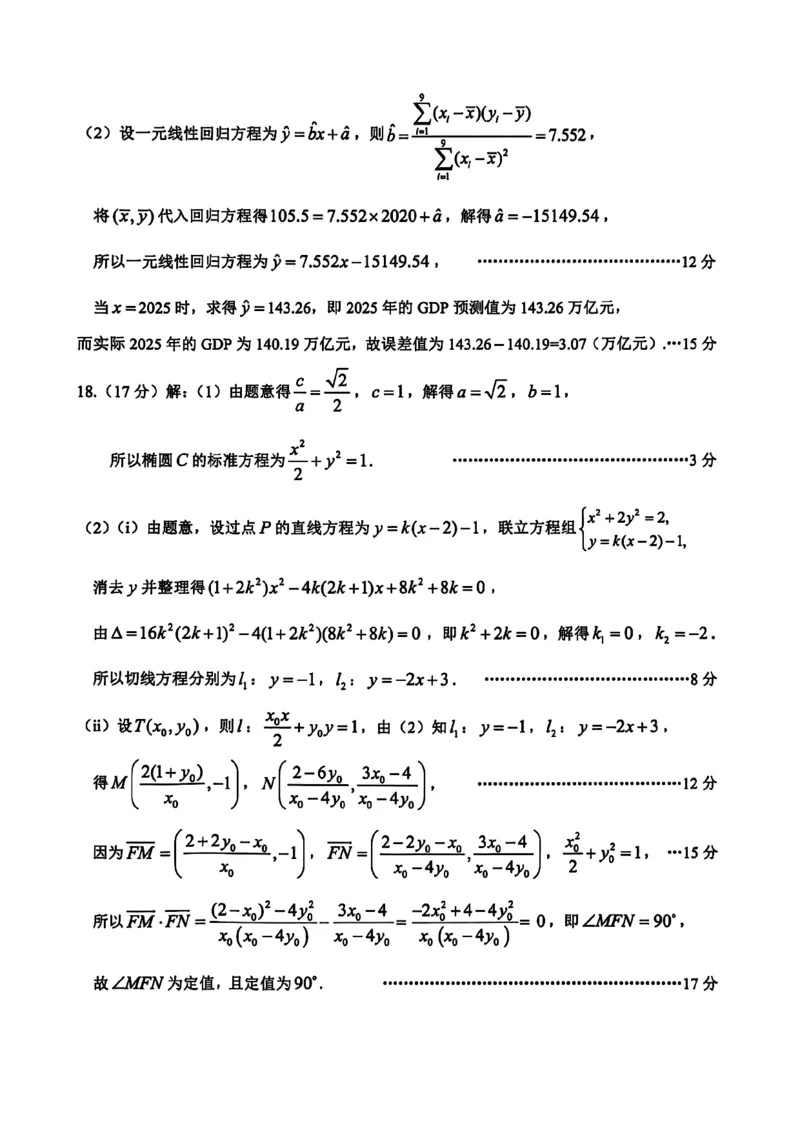 （2）设一元线性回归方程为$\hat{y}=\hat{b}x+\hat{a}$，则$\hat{b}=\dfrac{\sum_{i=1}^{9}(x_i-\overline{x})(y_i-\overline{y})}{\sum_{i=1}^{9}(x_i-\overline{x})^2}=7.552$，
将$(\overline{x},\overline{y})$代入回归方程得$105.5=7.552×2020+\hat{a}$，解得$\hat{a}=-15149.54$，
所以一元线性回归方程为$\hat{y}=7.552x-15149.54$， ……………………………………12 分
当$x=2025$时，求得$\hat{y}=143.26$，即 2025 年的 GDP 预测值为 143.26 万亿元，
而实际 2025 年的 GDP 为 140.19 万亿元，故误差值为 143.26－140.19=3.07（万亿元）.…15 分
18.（17 分）解：（1）由题意得$\dfrac{c}{a}=\dfrac{\sqrt{2}}{2}$，$c=1$，解得$a=\sqrt{2}$，$b=1$，
所以椭圆$C$的标准方程为$\dfrac{x^2}{2}+y^2=1$. ……………………………………3 分
（2）（i）由题意，设过点$P$的直线方程为$y=k(x-2)-1$，联立方程组$\begin{cases}x^2+2y^2=2,\\y=k(x-2)-1,\end{cases}$
消去$y$并整理得$(1+2k^2)x^2-4k(2k+1)x+8k^2+8k=0$，
由$\Delta=16k^2(2k+1)^2-4(1+2k^2)(8k^2+8k)=0$，即$k^2+2k=0$，解得$k_1=0$，$k_2=-2$.
所以切线方程分别为$l_1$：$y=-1$，$l_2$：$y=-2x+3$. ……………………………………8 分
（ii）设$T(x_0,y_0)$，则$l$：$\dfrac{x_0x}{2}+y_0y=1$，由（2）知$l_1$：$y=-1$，$l_2$：$y=-2x+3$，
得$M\left(\dfrac{2(1+y_0)}{x_0},-1\right)$，$N\left(\dfrac{2-6y_0}{x_0-4y_0},\dfrac{3x_0-4}{x_0-4y_0}\right)$， ……………………………………12 分
因为$\overline{FM}=\left(\dfrac{2+2y_0-x_0}{x_0},-1\right)$，$\overline{FN}=\left(\dfrac{2-2y_0-x_0}{x_0-4y_0},\dfrac{3x_0-4}{x_0-4y_0}\right)$，$\dfrac{x_0^2}{2}+y_0^2=1$， …15 分
所以$\overline{FM}\cdot\overline{FN}=\dfrac{(2-x_0)^2-4y_0^2}{x_0(x_0-4y_0)}-\dfrac{3x_0-4}{x_0-4y_0}=\dfrac{-2x_0^2+4-4y_0^2}{x_0(x_0-4y_0)}=0$，即$\angle MFN=90°$，
故$\angle MFN$为定值，且定值为$90°$. ……………………………………17 分